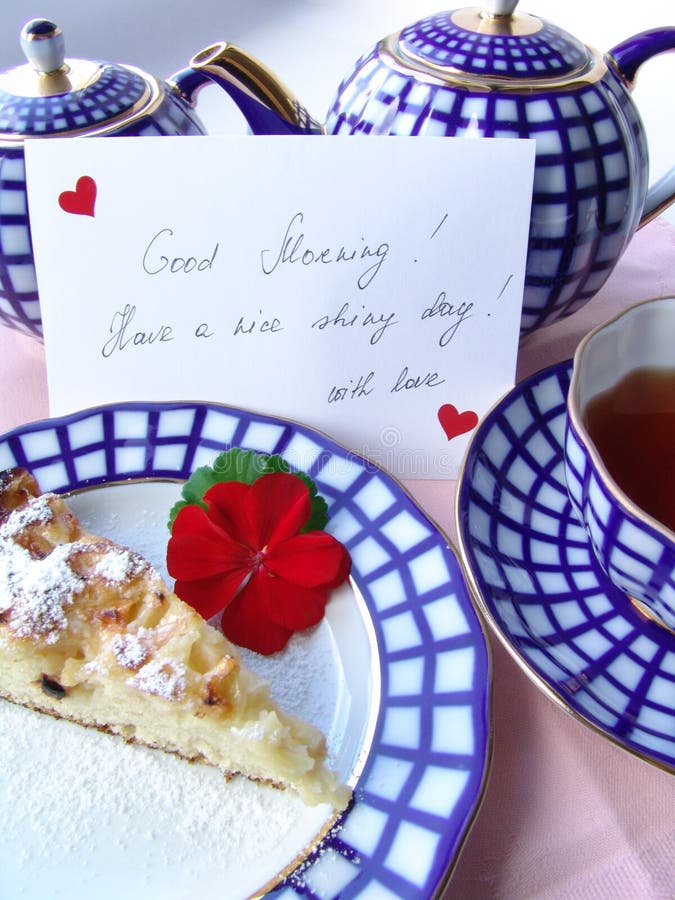 Good Morning!
Have a nice shiny day!
with love